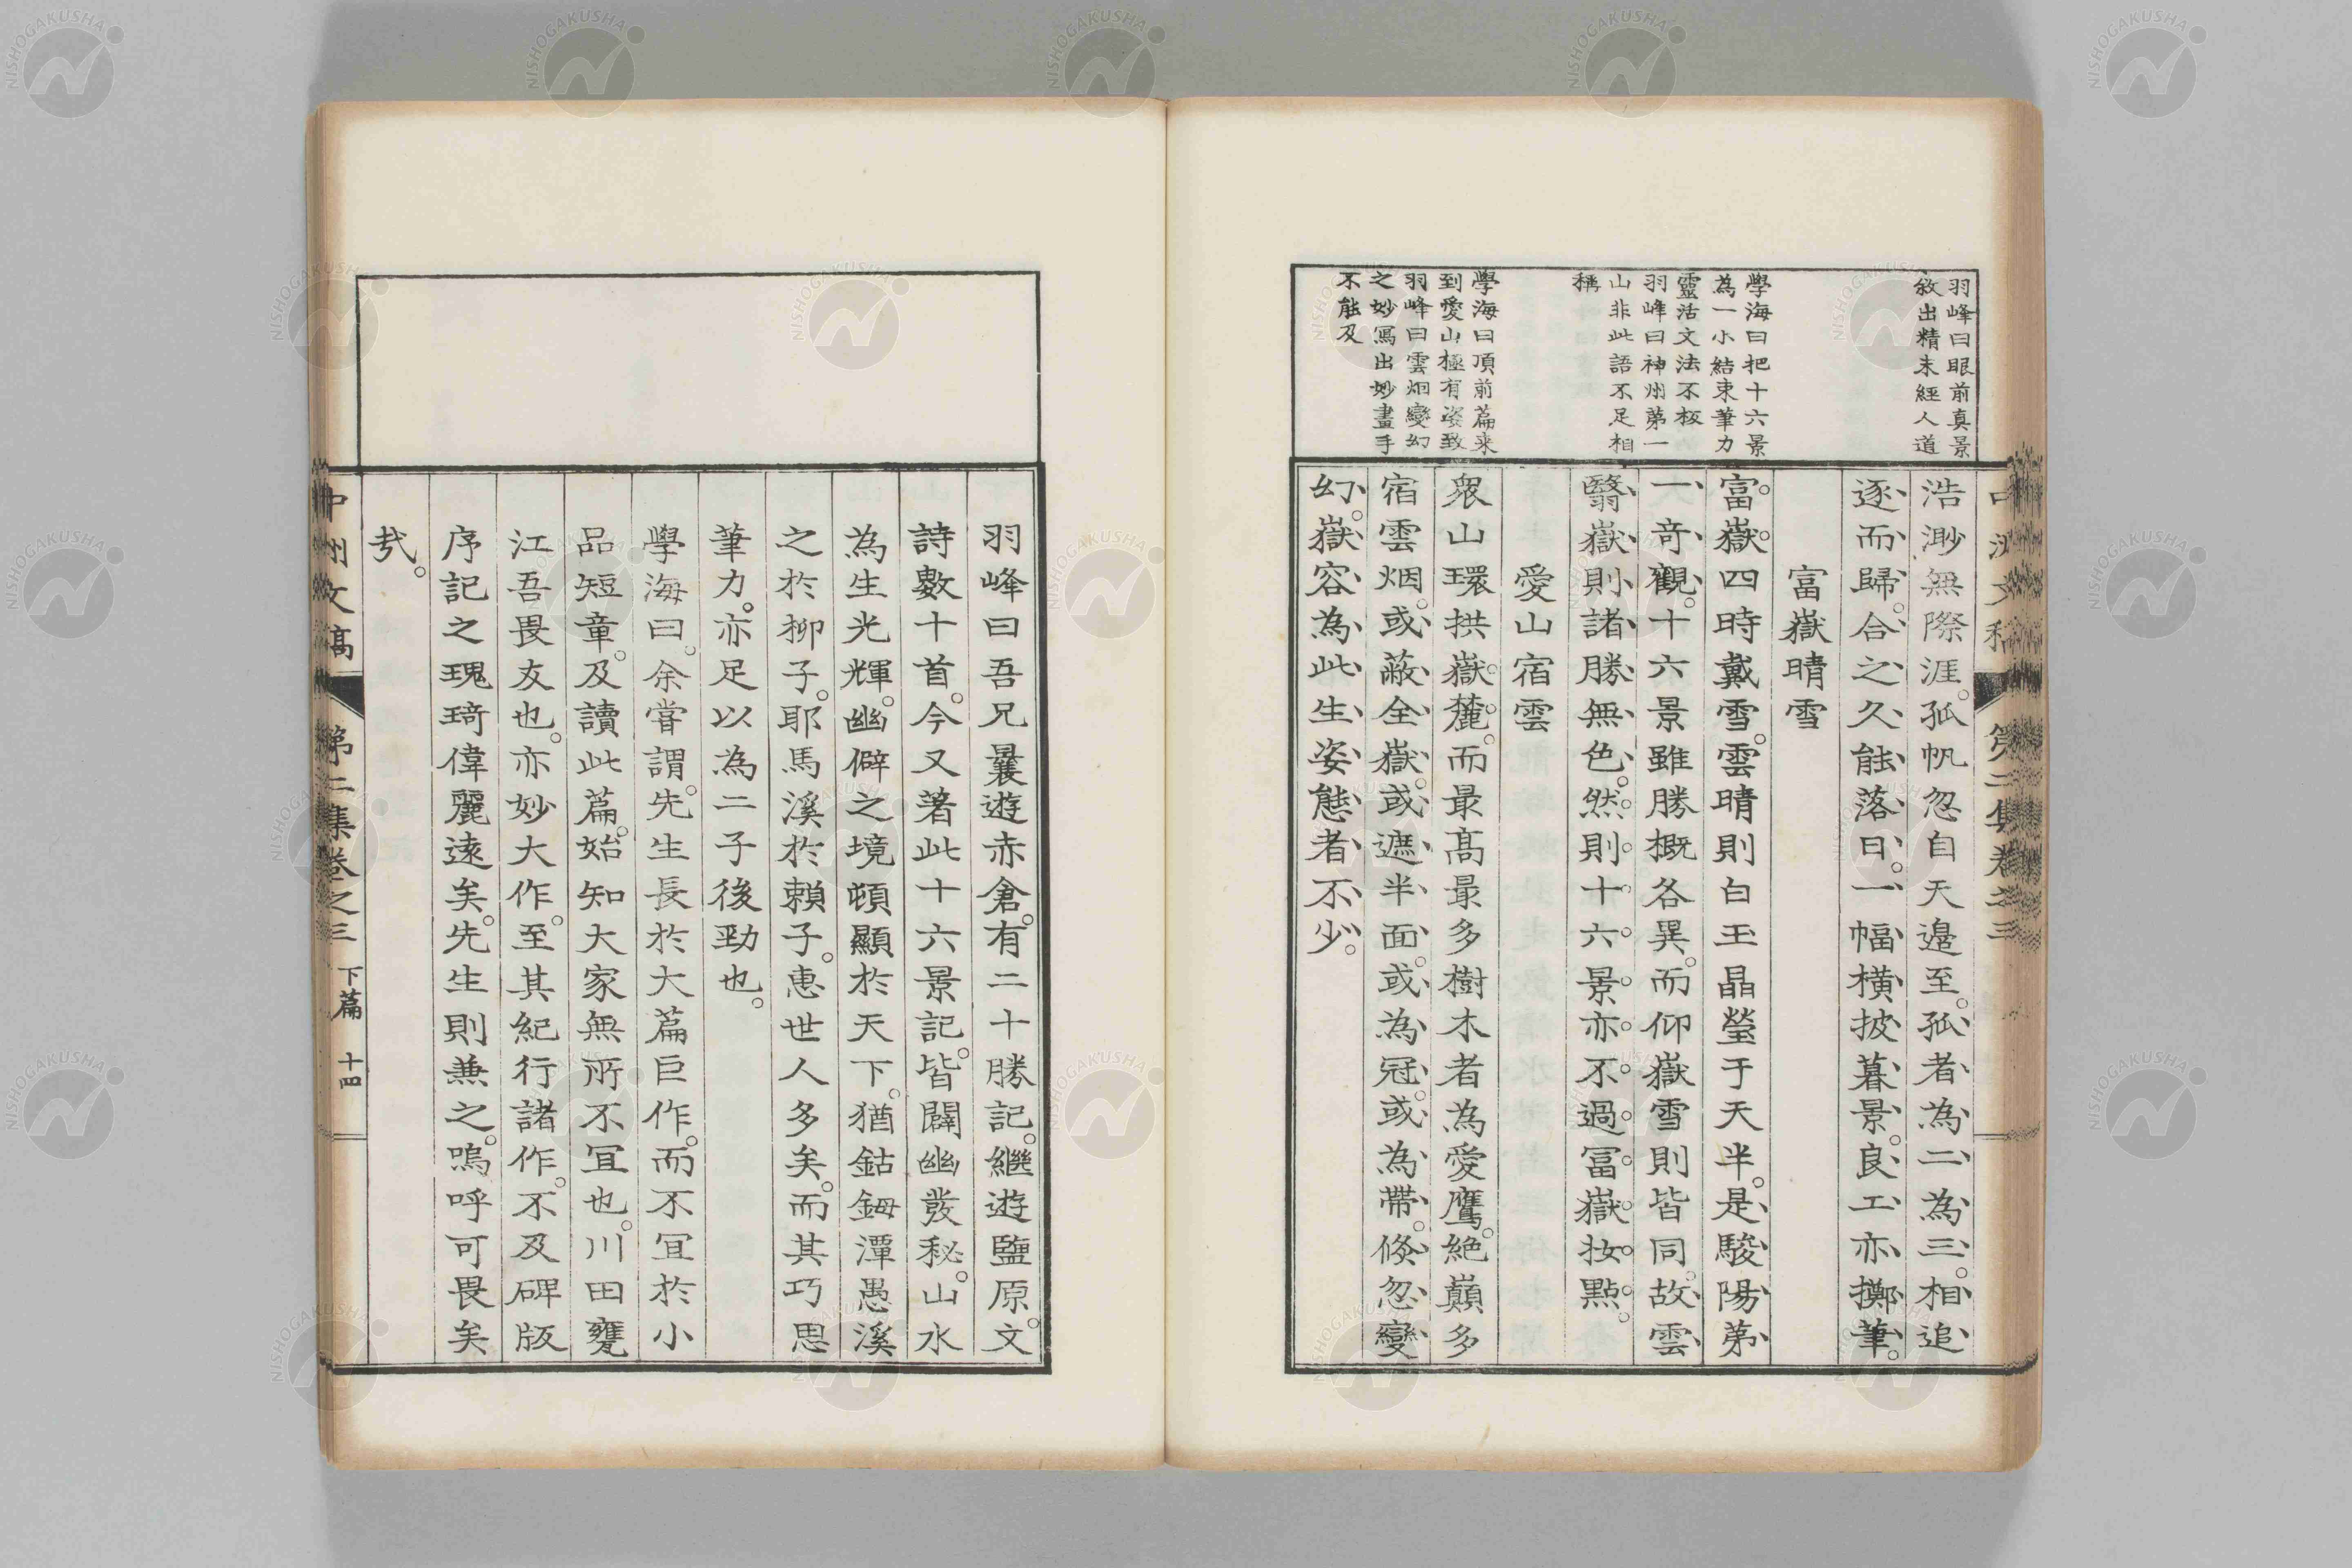 羽峰曰眼前真景
敘出精未經人道
學海曰把十六景
為一小結束筆力
靈活文法不板
羽峰曰神州第一
山非此語不足相
稱
學海曰頂前篇来
到愛山極有姿致
羽峰曰雲烟變幻
之妙寫出妙畫手
不能及
浩渺無際涯。孤帆忽自天邉至。孤者為二為三。相追
逐而歸。合之久能落日。一幅橫披暮景。良工亦擲筆。
富嶽晴雪
富嶽四時戴雪。雲晴則白玉晶瑩于天半。是駿陽第
一奇觀。十六景雖勝概各異。而仰嶽雪則皆同。故雲
翳嶽則諸勝無色。然則十六景亦不過富嶽妝點。
愛山宿雲
衆山環拱嶽麓。而最髙最多樹木者為愛鷹。絶巔多
宿雲烟。或蔽全嶽。或遮半面。或為冠。或為帶。倏忽變
幻。嶽容為此生姿態者不少。
中洲文稿 第二集卷之三
羽峰曰吾兄曩遊赤倉。有二十勝記。繼遊鹽原。文
詩數十首。今又著此十六景記。皆闢幽發秘。山水
為生光輝。幽僻之境頓顯於天下。猶鈷鉧潭愚溪
之於柳子。耶馬溪於賴子。惠世人多矣。而其巧思
筆力。亦足以為二子後勁也。
學海曰。余嘗謂。先生長於大篇巨作。而不宜於小
品短章。及讀此篇。始知大家無所不宜也。川田甕
江吾畏友也。亦妙大作。至其紀行諸作。不及碑版
序記之瑰琦偉麗遠矣。先生則兼之。嗚呼可畏矣
哉。
中洲文稿 第二集卷之三 下篇 十四